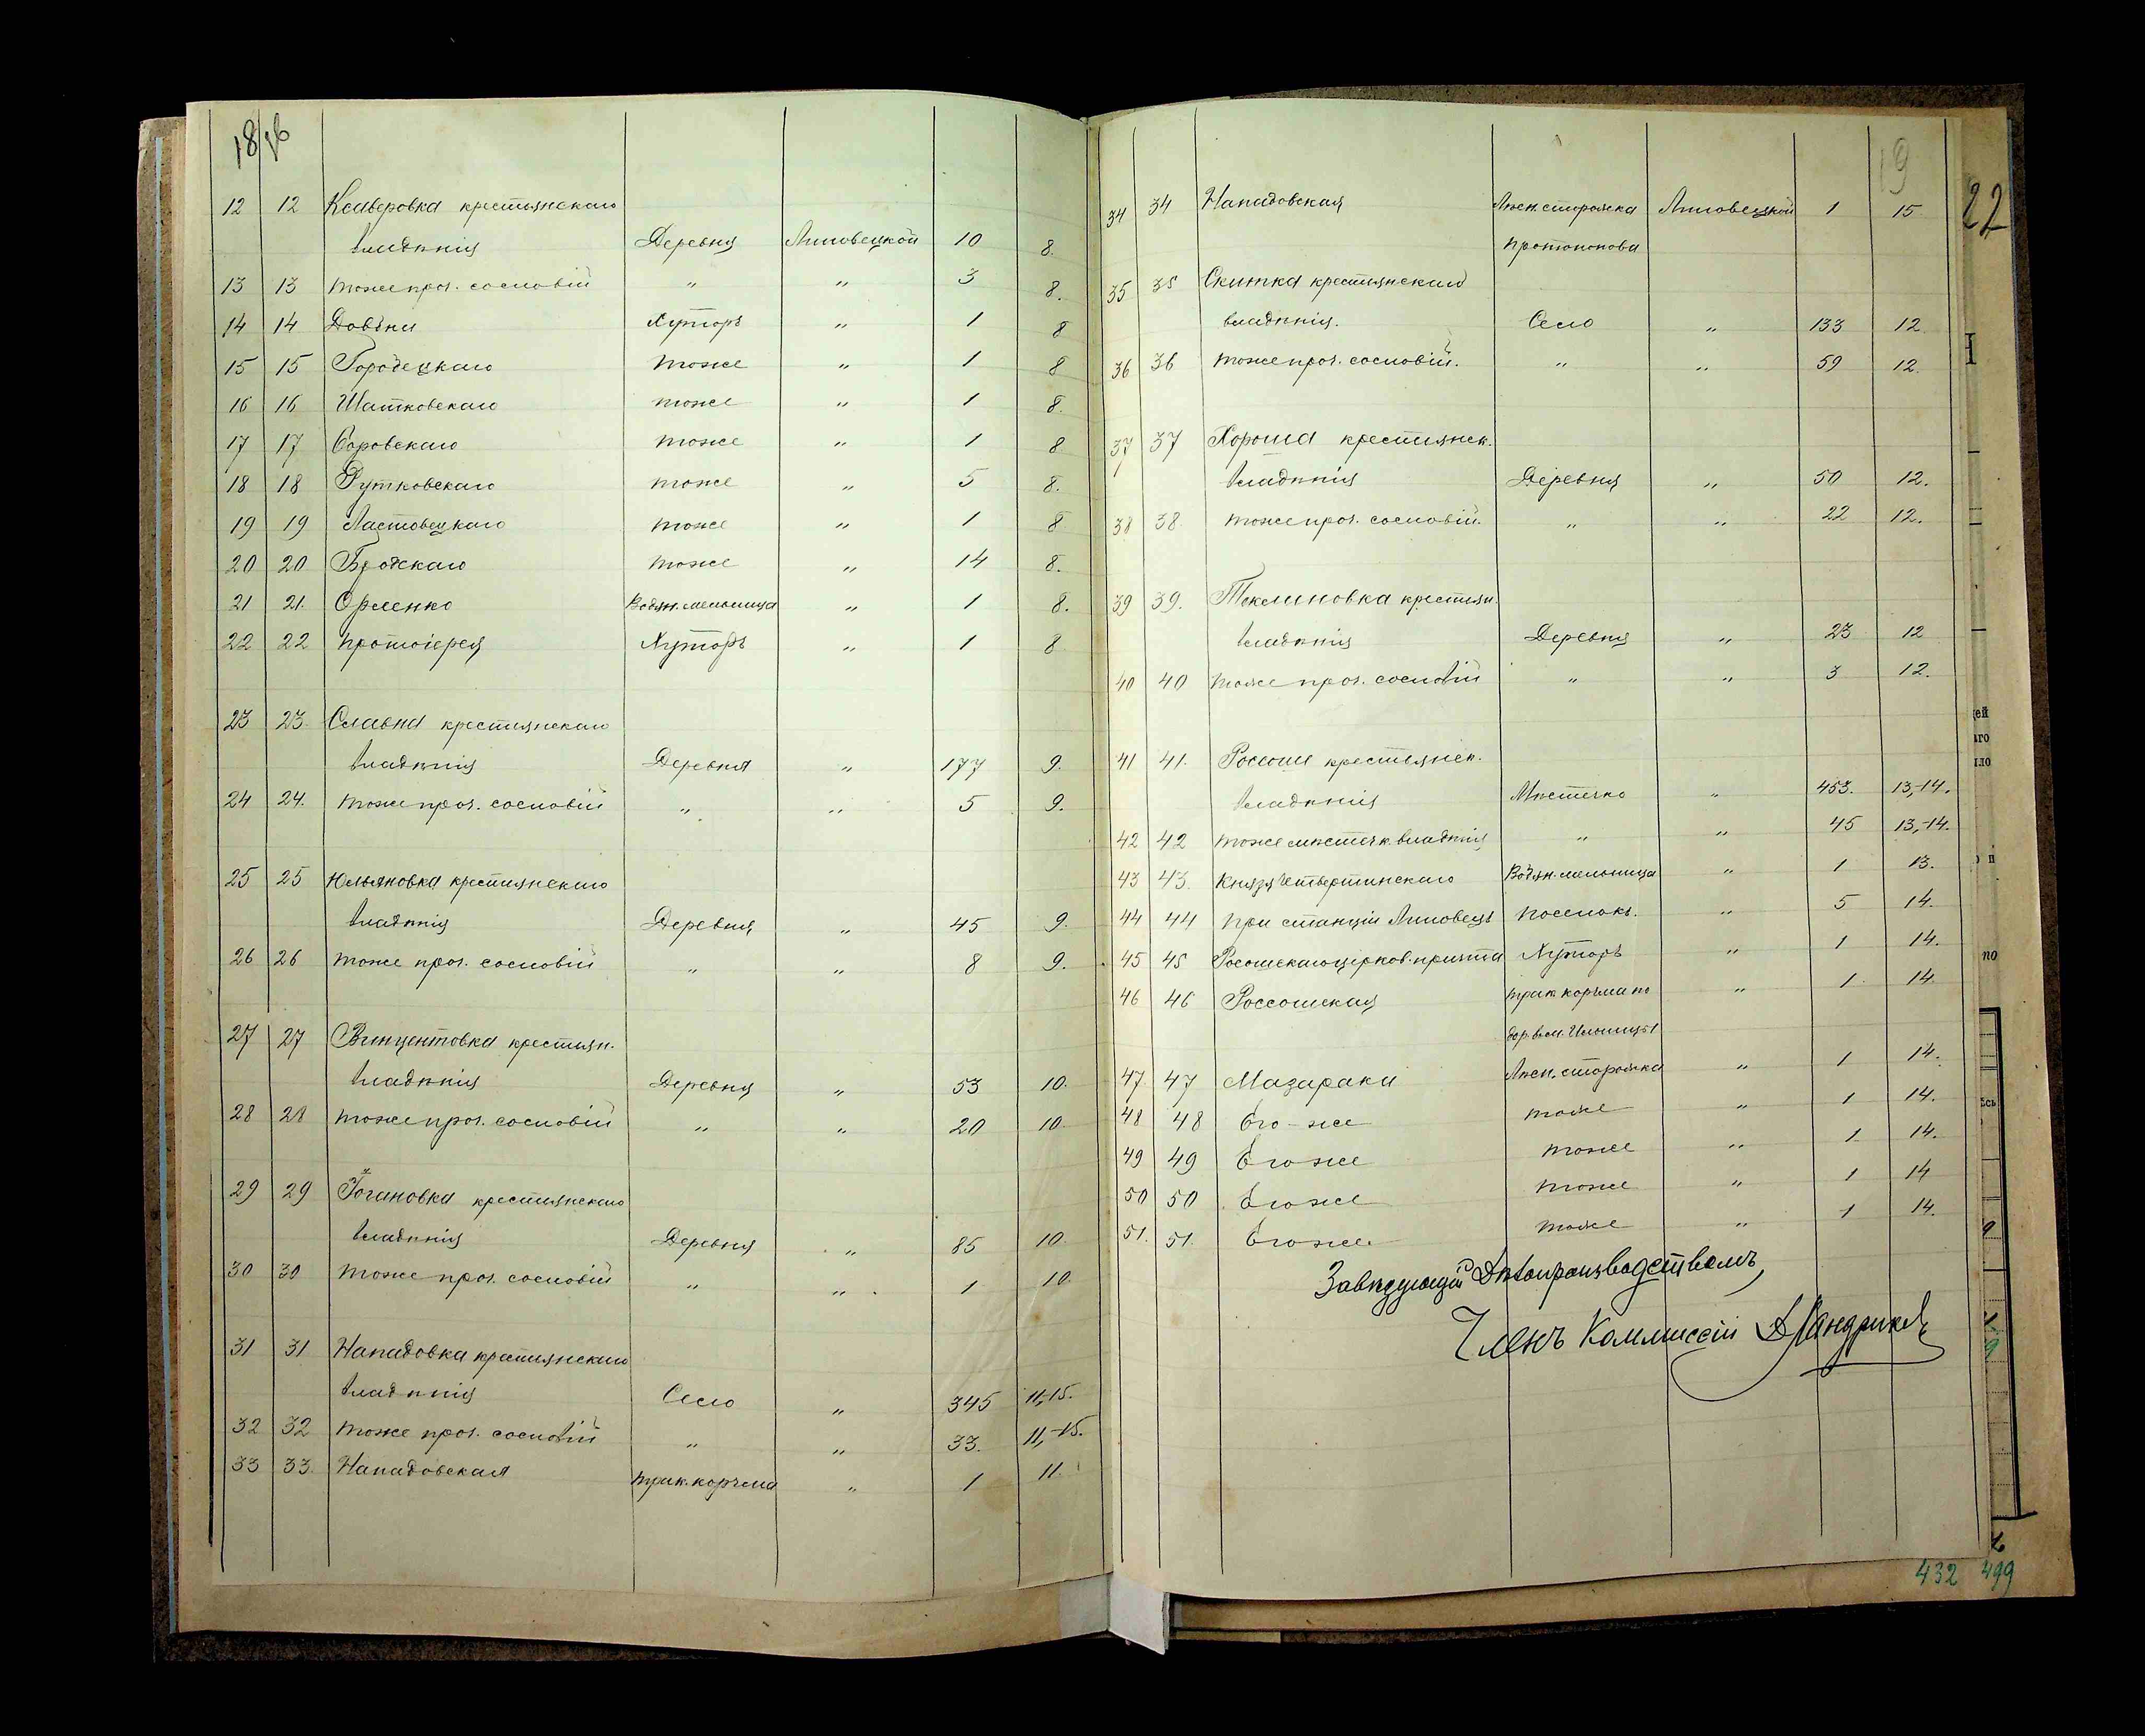 18 об
12 12 Ксаверовка крестьянскаго
владѣнія Деревня Липовецкой 10 8.
13 13 тоже проч. сословій " " 3 8.
14 14 Хуторъ " 1 8
15 15 Городецкаго тоже " 1 8
16 16 Шатковскаго тоже " 1 8.
17 17 тоже " 1 8
18 18 Рутковскаго тоже " 5 8.
19 19 Ластовецкаго тоже " 1 8
20 20 Бродскаго тоже " 14 8.
21 21. Орленко Водян. мельница " 1 8.
22 22 Протоіерея Хуторъ " 1 8
23 23 Славна крестьянскаго
владѣнія Деревня " 177 9.
24 24. тоже проч. сословій " " 5 9.
25 25 Юльяновка крестьянскаго
владѣнія Деревня " 45 9.
26 26 тоже проч. сословій " " 8 9.
27 27 Винцентовка крестьян.
владѣнія Деревня " 53 10.
28 28 тоже проч. сословій " " 20 10.
29 29 крестьянскаго
владѣнія Деревня " 85 10.
30 30 тоже проч. сословій " " 1 10
31 31 Нападовка крестьянскаго
владѣнія Село " 345 11,-15.
32 32 тоже проч. сословій " " 33. 11,-15.
33 33. Нападовская трак. корчма " 1 11.
19
22
34 34 Нападовская Лѣсн. сторожка Липовецкой 1 15
Протопопова
35 35 Скитка крестьянскаго
владѣнія. Село " 133 12.
36 36 тоже проч. сословій. " " 59 12.
37 37 Хороша крестьянск.
владѣнія Деревня " 50 12.
38 38 тоже проч. сословій. " " 22 12.
39 39. Теклиновка крестьян.
владѣнія Деревня " 23 12
40 40 тоже проч. сословій " " 3 12.
41 41. Россоше крестьянск.
владѣнія Мѣстечко " 453. 13,-14.
42 42 тоже мѣстечк. владѣнія " " 45 13,-14.
43 43. Князя Четвертинскаго Водян. мельница " 1 13.
44 44 При станціи Липовецъ Поселокъ. " 5 14.
45 45 Росошскаго церков. причта Хуторъ " 1 14.
46 46 Россошская трак. корчма по " 1 14.
дор. въ м. Ильинцы
47 47 Мазараки Лѣсн. сторожка " 1 14.
48 48 Его-же тоже " 1 14.
49 49 Егоже тоже " 1 14.
50 50 Егоже тоже " 1 14
51. 51. Егоже тоже " 1 14.
Завѣдующій Дѣлопроизводствомъ,
Членъ Коммиссіи
432 499